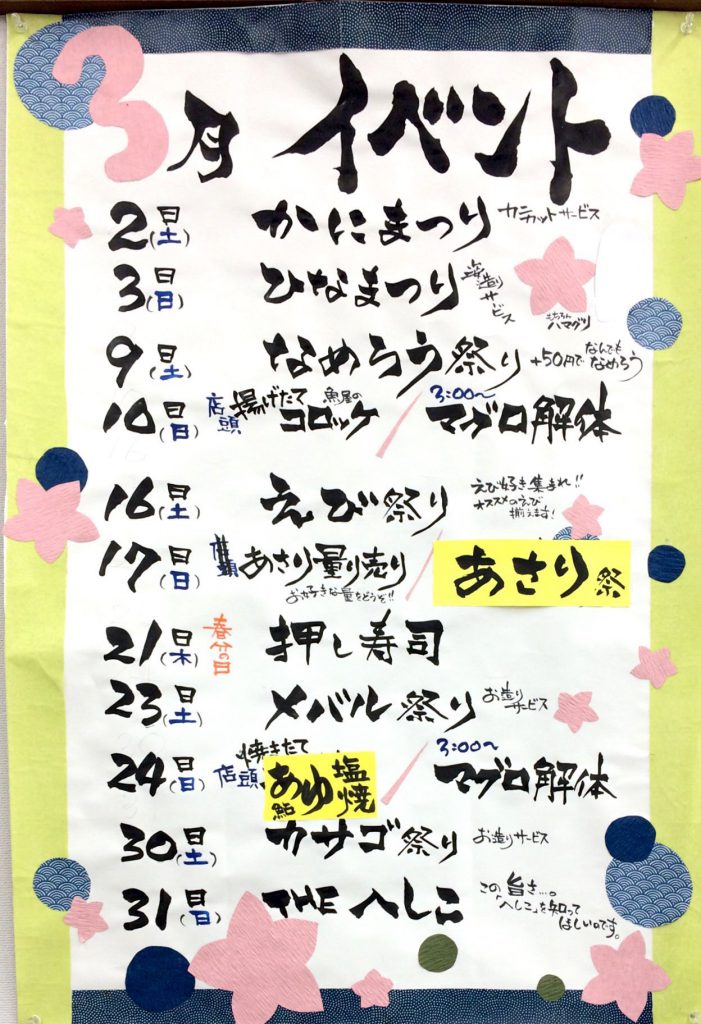 3月 イベント
2日(土) かにまつり カニカットサービス
3日(日) ひなまつり 姿造りサービス ハマグリ
9日(土) なめろう祭り +50円でなんでもなめろう
10日(日) 店頭 揚げたて 魚屋のコロッケ / 3:00〜 マグロ解体
16日(土) えび祭り えび好き集まれ!! オススメのえび揃えます!
17日(日) 店頭 あさり量り売り お好きな量をどうぞ!! / あさり祭
21日(木) 春分の日 押し寿司
23日(土) メバル祭り お造りサービス
24日(日) 店頭 焼きたて あゆ 鮎 塩焼 / 3:00〜 マグロ解体
30日(土) カサゴ祭り お造りサービス
31日(日) THE へしこ この旨さ…。「へしこ」を知ってほしいのです。